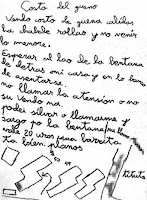 Costo del gueno
Vendo costo de guena calidas
na chabale rollas y no venir
lo menore.
Esperar al lao de la bentana
de detras oni casa y en lo banco
de asentarse
no llamar la atension o no
su vendo na.
podei silvar o llamarme y
sargo po la bentana
vale 20 uros una barrita
ta bien planos
titute